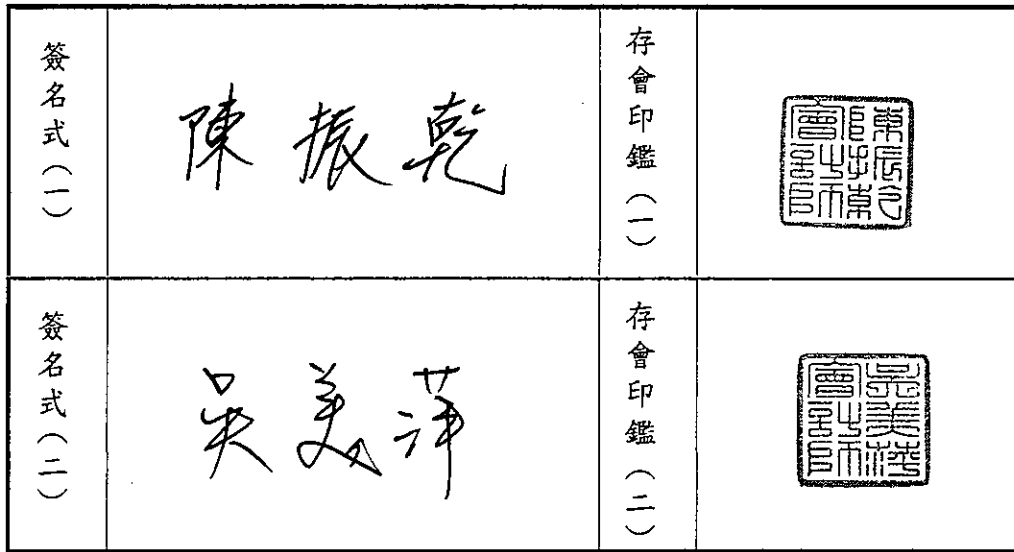 簽名式(一)
陳振乾
存會印鑑(一)
陳振乾會計師
簽名式(二)
吳美萍
存會印鑑(二)
吳美萍會計師